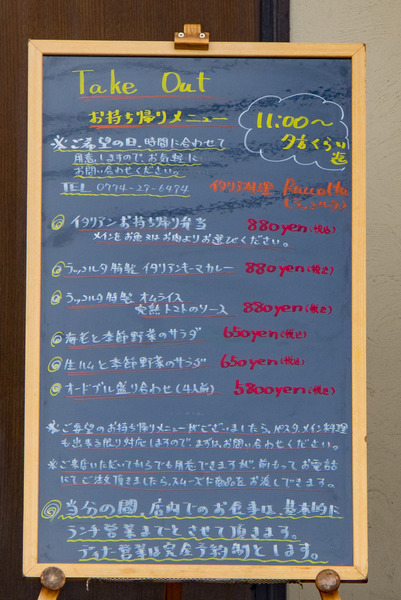 Take Out
お持ち帰りメニュー
11:00〜
夕方くらい
迄
※ご希望の日、時間に合わせて
用意しますので、お気軽に
お問い合わせください。
TEL 0774-29-6474
イタリア料理 Raccolta
ラッコルタ
◎イタリアンお持ち帰り弁当 880yen(税込)
メインをお魚又はお肉よりお選びください。
◎ラッコルタ特製 イタリアンキーマカレー 880yen(税込)
◎ラッコルタ特製 オムライス
完熟トマトのソース 880yen(税込)
◎海老と季節野菜のサラダ 650yen(税込)
◎生ハムと季節野菜のサラダ 650yen(税込)
◎オードブル盛り合わせ(4人前) 5800yen(税込)
※ご希望のお持ち帰りメニューがございましたら、パスタ、メイン料理
も出来る限り対応しますので、まずは、お問い合わせください。
※ご来店いただいてからでも用意できますが、前もってお電話
にてご注文頂きましたら、スムーズに商品をお渡しできます。
◎当分の間、店内でのお食事は、基本的に
ランチ営業までとさせて頂きます。
ディナー営業は完全予約制とします。